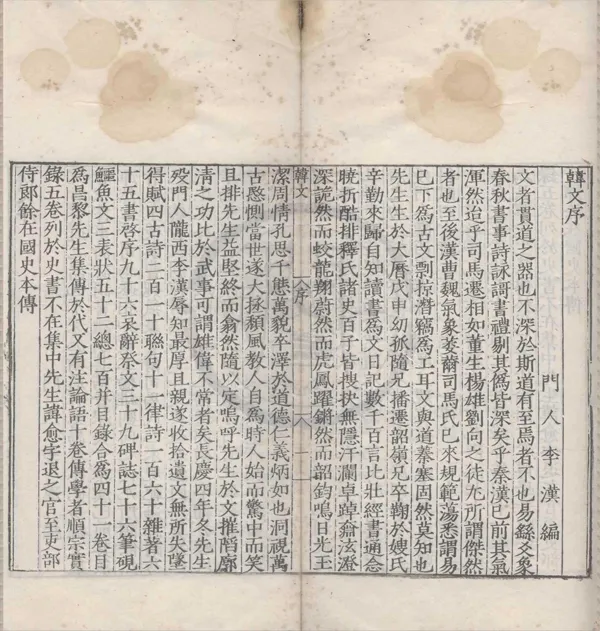 韓文序
門人李漢編
文者貫道之器也不深於斯道有至焉者不也易繇爻象
春秋書事詩詠謌書禮剔其僞皆深矣乎秦漢已前其氣
渾然迨乎司馬遷相如董生楊雄劉向之徒尤所謂傑然
者也至後漢曹魏氣象萎薾司馬氏已來規範蕩悉謂易
已下爲古文剽掠潛竊爲工耳文與道蓁塞固然莫知也
先生生於大曆戊申幼孤隨兄播遷韶嶺兄卒鞠於嫂氏
辛勤來歸自知讀書爲文日記數千百言比壯經書通念
曉析酷排釋氏諸史百子皆搜抉無隱汗瀾卓踔奫泫澄
深詭然而蛟龍翔蔚然而虎鳳躍鏘然而韶鈞鳴日光玉
韓文 序
潔周情孔思千態萬貌卒澤於道德仁義炳如也洞視萬
古愍惻當世遂大拯頹風教人自爲時人始而驚中而笑
且排先生益堅終而翕然隨以定嗚呼先生於文摧陷廓
清之功比於武事可謂雄偉不常者矣長慶四年冬先生
歿門人隴西李漢辱知最厚且親遂收拾遺文無所失墜
得賦四古詩二百一十聯句十一律詩一百六十雜著六
十五書啓序九十六哀辭祭文三十九碑誌七十六筆硯
鱷魚文三表狀五十二總七百并目錄合爲四十一卷目
爲昌黎先生集傳於代又有注論語十卷傳學者順宗實
錄五卷列於史書不在集中先生諱愈字退之官至吏部
侍郎餘在國史本傳